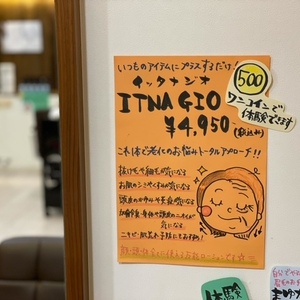 いつものアイテムにプラスするだけ!
イッタナジオ
ITNA GIO
¥4,950
(税込み)
500
ワンコインで
体験できます
これ1本で老化のお悩みトータルアプローチ!!
抜け毛や細毛が気になる
お肌のシミやくすみが気になる
頭皮のかゆみや炎症が気になる
加齢臭・身体や頭皮のニオイが
気になる
ニキビ・肌荒れ予防にもおすすめ!
体験